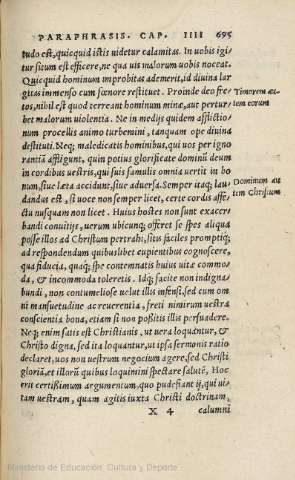 PARAPHRASIS. CAP. IIII 695
tudo est, quicquid istis uidetur calamitas. In uobis igi⸗
tur situm est efficere, ne qua uis malorum uobis noceat.
Quicquid hominum improbitas ademerit, id diuina lar
gitas immenso cum fœnore restituet. Proinde deo fre⸗
tos, nihil est quod terreant hominum minæ, aut pertur
bet malorum uiolentia. Ne in medijs quidem afflictio
num procellis animo turbemini, tanquam ope diuina
destituti. Neq; maledicatis hominibus, qui uos per igno
rantiã affligunt, quin potius glorificate dominũ deum
in cordibus uestris, qui suis famulis omnia uertit in bo
num, siue læta accidunt, siue aduersa. Semper itaq; lau
dandus est, si uoce non semper licet, certe cordis affe⸗
ctu nusquam non licet. Huius hostes non sunt exacer⸗
bandi conuitijs, uerum ubicunq; offert se spes aliqua
posse illos ad Christum pertrahi, sitis faciles promptiq;
ad respondendum quibuslibet cupientibus cognoscere,
qua fiducia, quaq́; spe contemnatis huius uitæ commo⸗
da, & incommoda toleretis. Idq; facite non indigna⸗
bundi, non contumeliose uelut illis infensi, sed cum om
ni mansuetudine ac reuerentia, freti nimirum uestra
conscientia bona, etiam si non possitis illis persuadere.
Neq; enim satis est Christianis, ut uera loquãtur, &
Christo digna, sed ita loquantur, ut ipsa sermonis ratio
declaret, uos non uestrum negocium agere, sed Christi
gloriã, et illorũ quibus loquimini spectare salutẽ. Hoc
erit certißimum argumentum, quo pudefiant ij, qui ui⸗
tam uestram, quam agitis iuxta Christi doctrinam,
X 4 calumni
Timorem au⸗
tem eorum
Dominum au
tem Christum
Ministerio de Educación, Cultura y Deporte